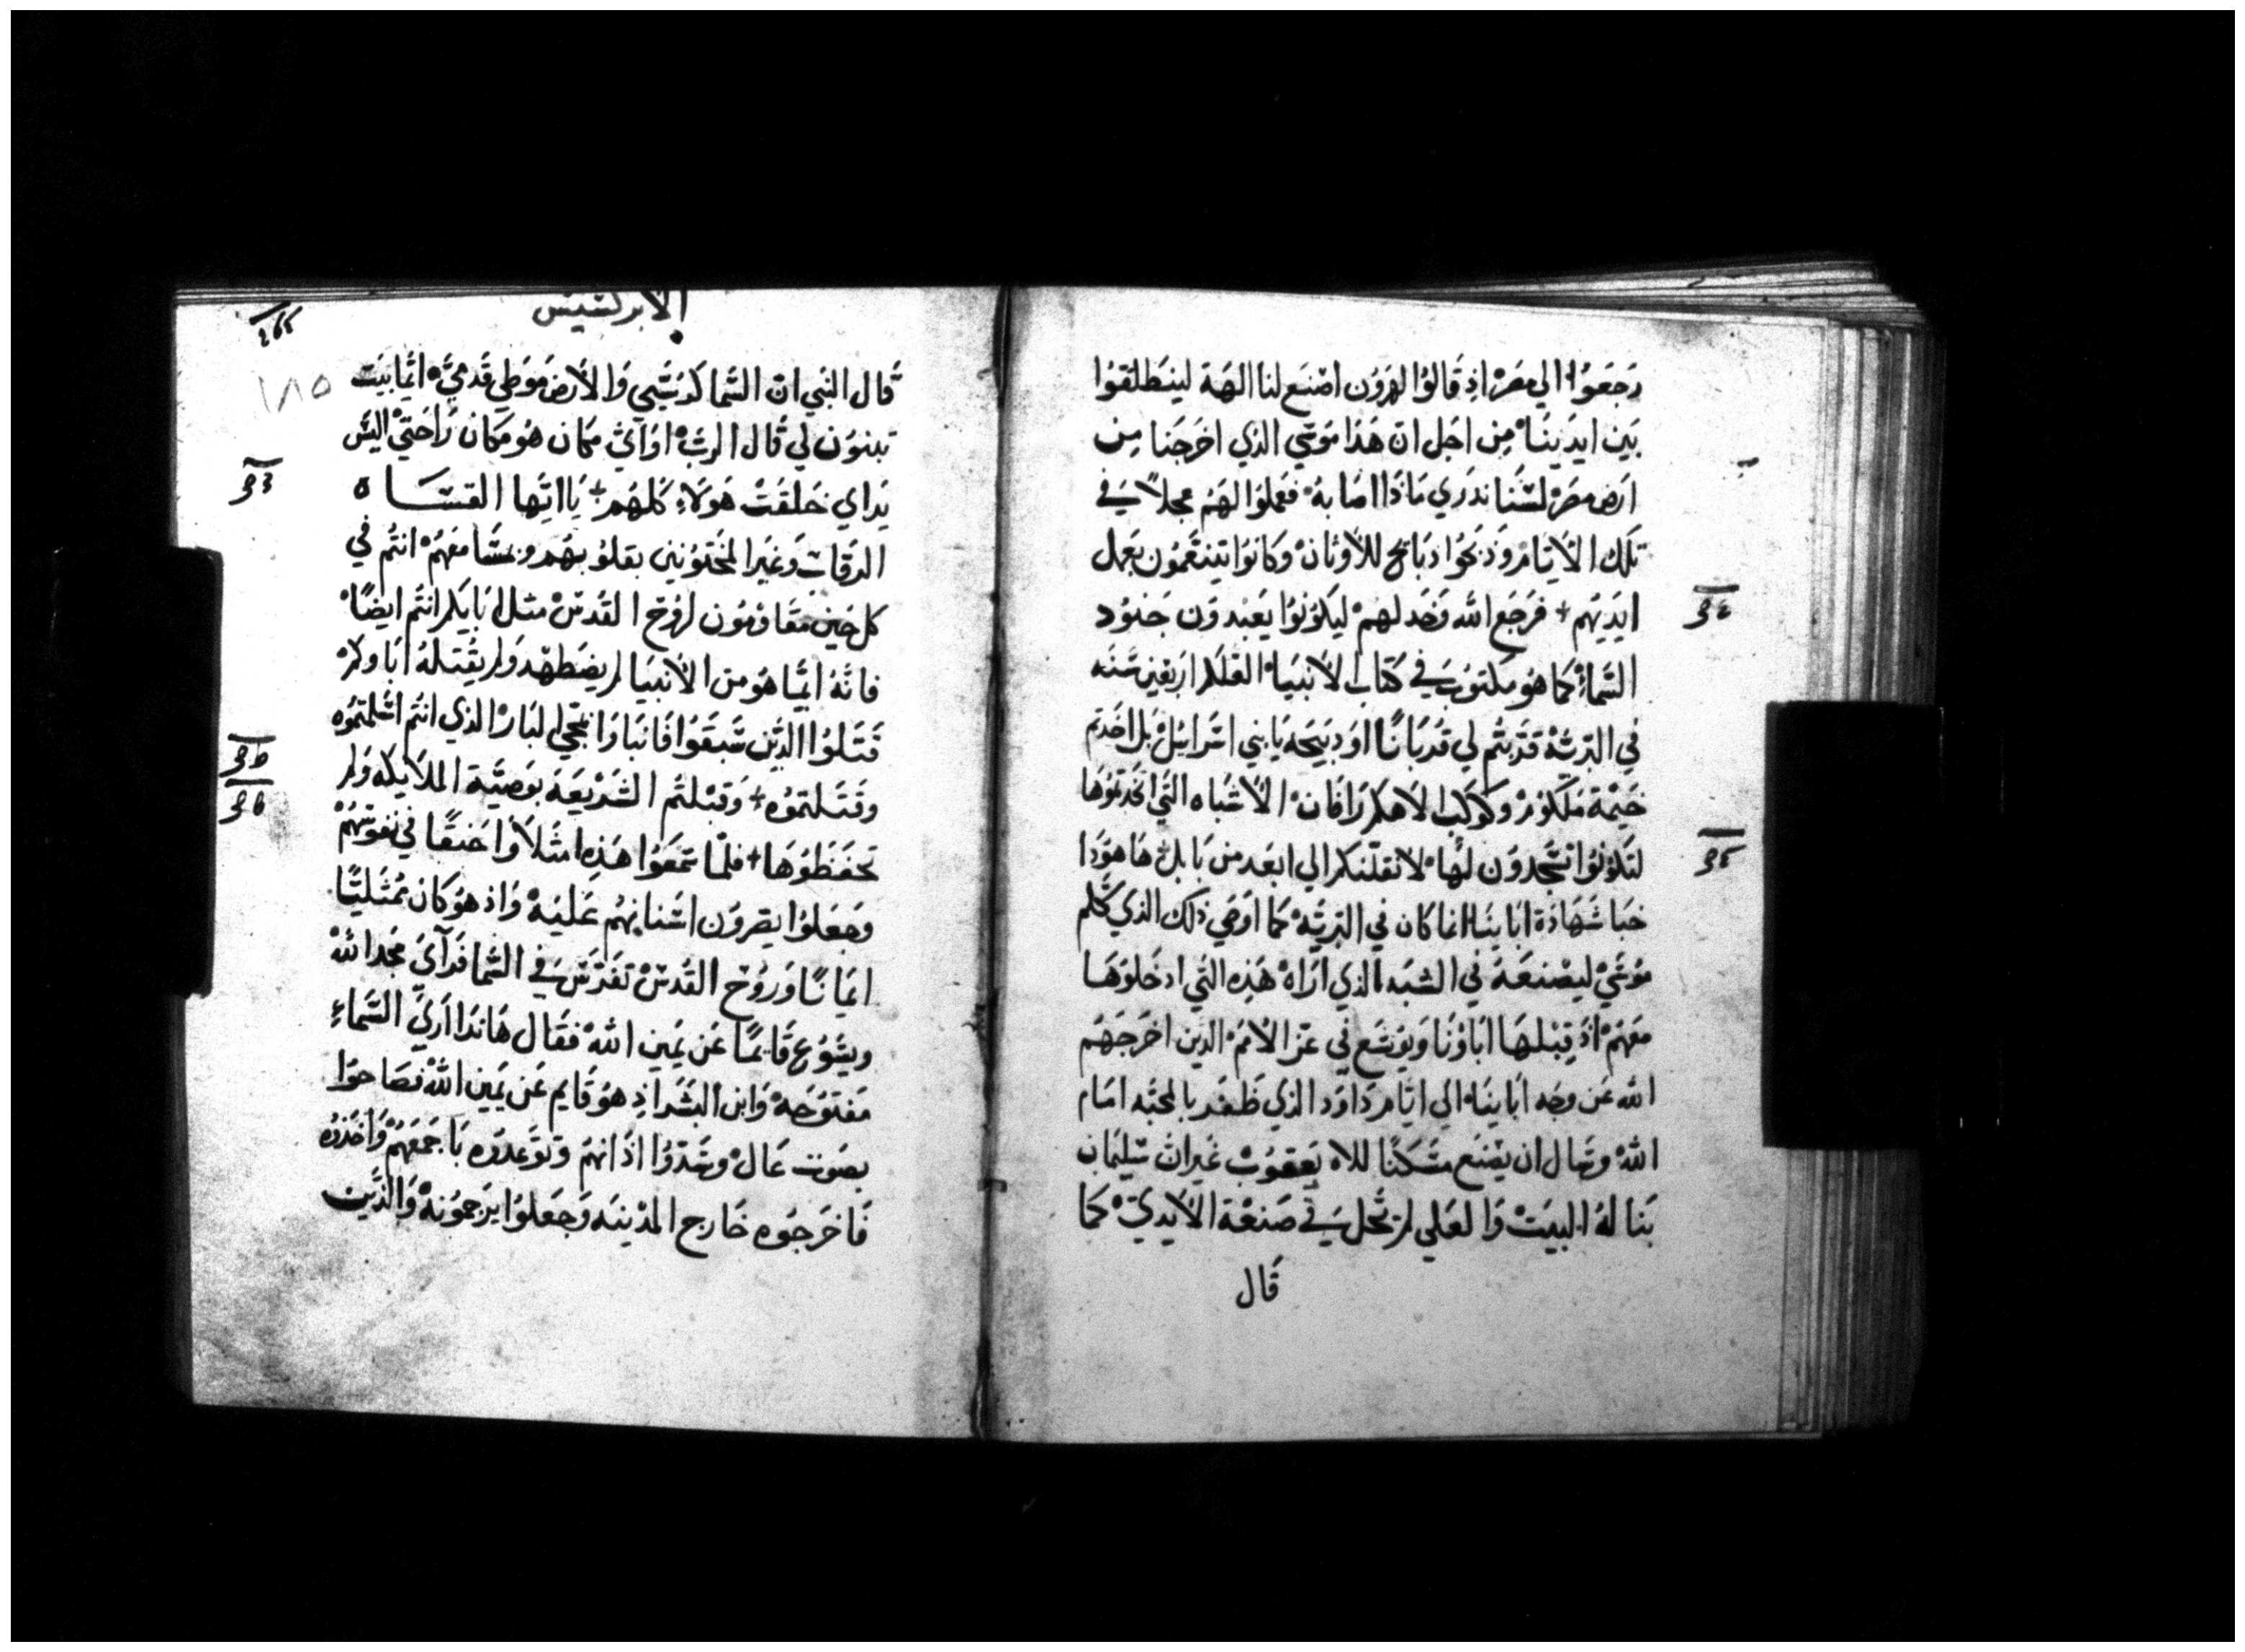 رجعوا الي مصر اذ قالوا لهرون اصنع لنا الهة لينطلقوا
بين ايدينا من اجل ان هذا موسي الذي اخرجنا من
ارض مصر لسنا ندري ماذا اصابه فعملوا لهم عجلاً في
تلك الايام وذبحوا ذبايح للاوثان وكانوا يتنعمون بعمل
ايديهم + فرجع الله وخدلهم ليكونوا يعبدون جنود
السماء كما هو مكتوب في كتاب الانبياء العلكم اربعين سنه
في البرية قربتم لي قرباناً او دبيحه يابني اسراييل بل اخدتم
خيمة ملكوم وكوكب الاهكم رافان الاشباه التي اتخدتموها
لتكونوا تسجدون لها لانقلنكم الي ابعد من بابل هاهودا
خبا شهادة اباينا انما كان في البرية كما اوصي ذلك الذي كلم
موسي ليصنعة في الشبه الذي اراه هذه التي ادخلوها
معهم اذ قبلها اباونا ويوشع في عز الامم الدين اخرجهم
الله عن وجه اباينا الي ايام داود الذي ظفر بالمحبه امام
الله وسال ان يصنع مسكناً للاه يعقوب غيران سليمان
بنا له البيت والعلي لم تحل في صنعة الايدي كما
قال
الابركسيس
١٨٥
قال النبي ان السما كرسيي والارض موطي قدمي ايما بيت
تبنون لي قال الرب او اي مكان هو مكان راحتي اليس
يداي خلقت هولاء كلهم + يا ايها القساه
الرقاب وغير المختونين بقلوبهم وبمسامعهم انتم في
كل حين مقاومون لروح القدس مثل ابايكم انتم ايضاً
فانه ايما هو من الانبيا لم يضطهد ولم يقتله اباوكم
قتلوا الذين سبقوا فانباوا بمجي البار الذي انتم اسلمتموه
وقتلتموه + وقبلتم الشريعة بوصية الملايكه ولم
تحفظوها + فلما سمعوا هذه امتلاوا حنقاً في نفوسهم
وجعلوا يصرون اسنانهم علية واذ هو كان ممتلياً
ايماناً وروح القدس تفرس في السما فرآي مجد الله
ويسوع قايماً عن يمين الله فقال هانذا اري السماء
مفتوحة وابن البشر اذ هو قايم عن يمين الله فصاحوا
بصوت عال وسدوا اذانهم وتوعدوه باجمعهم واخذوه
فاخرجوه خارج المدينه وجعلوا يرجمونة والذين